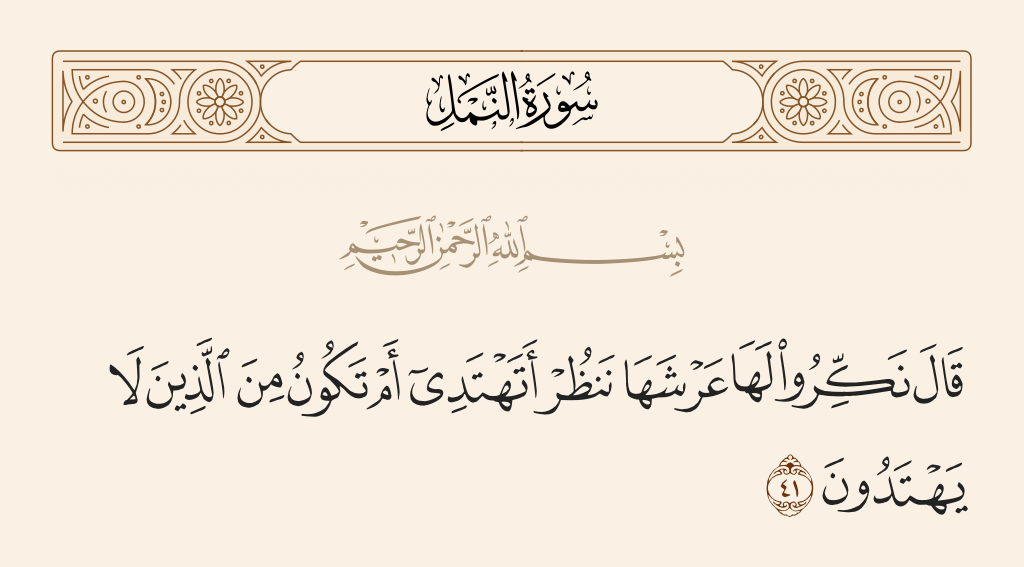 سُورَةُ النَّمۡلِ
بِسۡمِ ٱللَّهِ ٱلرَّحۡمَٰنِ ٱلرَّحِيمِ
قَالَ نَكِّرُواْ لَهَا عَرۡشَهَا نَنظُرۡ أَتَهۡتَدِيٓ أَمۡ تَكُونُ مِنَ ٱلَّذِينَ لَا
يَهۡتَدُونَ ٤١